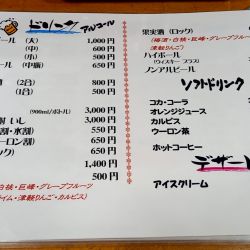 ドリンク アルコール
ール (大) 1,000円
(中) 600円
(小) 500円
ール (中瓶) 650円
(2合) 800円
(1合) 500円
(900ml/ボトル) 3,000円
いし 3,000円
割・水割) 550円
割) 550円
ック) 650円
1,400円
500円
・白桃・巨峰・グレープフルーツ
イム・津軽りんご・カルピス)
果実酒 (ロック)
(梅酒・白桃・巨峰・グレープフルーツ
津軽りんご)
ハイボール
(ウィスキー プラス)
ノンアルビール
ソフトドリンク
コカ・コーラ
オレンジジュース
カルピス
ウーロン茶
ホットコーヒー
デザート
アイスクリーム